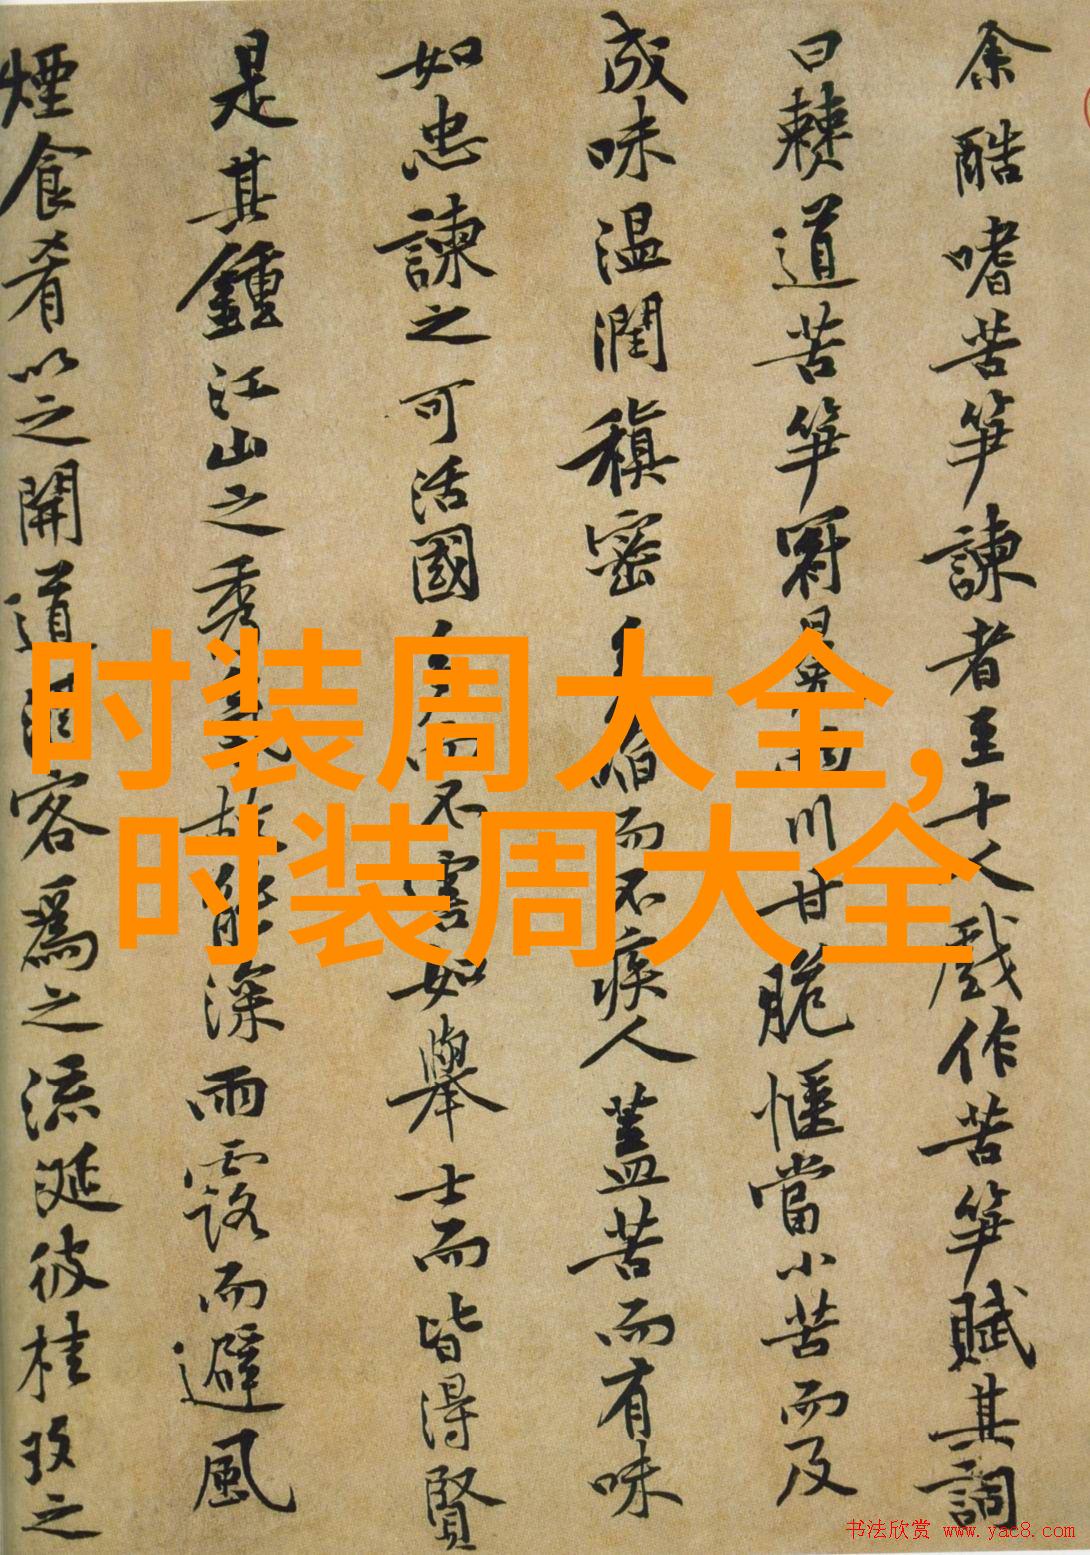 余酷嗜苦笋諫者至十人戲作苦笋賦其詞
曰僰道苦笋冠冕兩川甘脆愜當小苦而及
成味温潤稹密多啗而不疾人蓋苦而有味
如忠諫之可活國多而不害如舉士而皆得賢
是其鍾江山之秀氣故能深雨露而避風
煙食肴以之開道酒客爲之流涎彼桂玫之
时装周大全,
时装周大全
书法欣赏 www.yac8.com